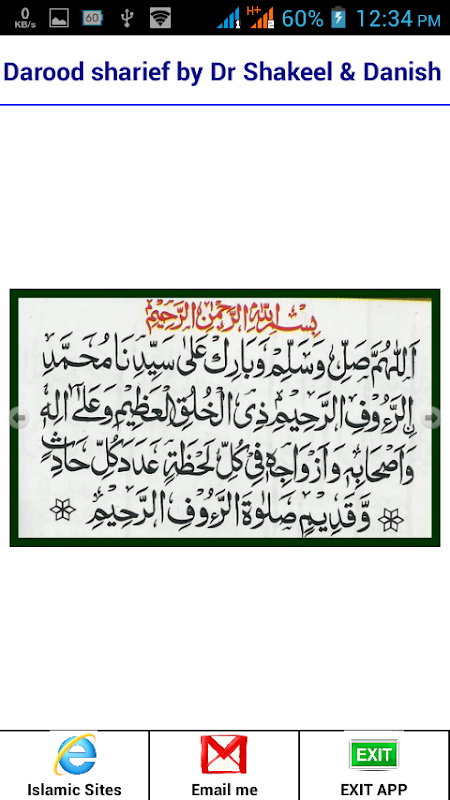 0 KB/s 60 H+ 1 2 60% 12:34 PM
Darood sharief by Dr Shakeel & Danish
بِسْمِ اللهِ الرَّحْمٰنِ الرَّحِيْمِ
اَللّٰهُمَّ صَلِّ وَسَلِّمْ وَبَارِكْ عَلٰى سَيِّدِنَا مُحَمَّدِ
نِ الرَّءُوْفِ الرَّحِيْمِ ذِى الْخُلُقِ الْعَظِيْمِ وَعَلٰٓى اٰلِهٖ
وَاَصْحَابِهٖ وَاَزْوَاجِهٖ فِىْ كُلِّ لَحْظَةٍ عَدَدَ كُلِّ حَادِثٍ
وَّقَدِيْمٍ صَلٰوةَ الرَّءُوْفِ الرَّحِيْمِ
Islamic Sites
Email me
EXIT
EXIT APP